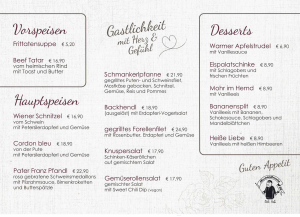 Vorspeisen
Frittatensuppe € 5,20
Beef Tatar € 16,90
vom heimischen Rind
mit Toast und Butter
Hauptspeisen
Wiener Schnitzel € 16,90
vom Schwein
mit Petersilerdäpfel und Gemüse
Cordon bleu € 18,90
von der Pute
mit Petersilerdäpfel und Gemüse
Pater Franz Pfandl € 22,90
rosa gebratene Schweinemedaillons
mit Pilzrahmsauce, Birnenkroketten
und Butterspätzle
Gastlichkeit
mit Herz &
Gefühl
Schmankerlpfanne € 21,90
gegrilltes Puten- und Schweinsfilet
Mostkäse gebacken, Schnitzel,
Gemüse, Reis und Pommes
Backhendl € 18,90
(ausgelöst) mit Erdapfel-Vogerlsalat
gegrilltes Forellenfilet € 24,90
mit Rosmarinerdäpfel und Gemüse
Knuspersalat € 17,90
Schinken-Käseröllchen
auf gemischtem Salat
Gemüserollensalat € 17,90
gemischter Salat
mit Sweet Chili Dip
Desserts
Warmer Apfelstrudel € 6,90
mit Vanillesauce
Eispalatschinke € 8,90
mit Schlagobers und
frischen Früchten
Mohr im Hemd € 8,90
mit Vanilleeis
Bananensplit € 8,90
Vanilleeis mit Bananen,
Schokosauce, Schlagobers und
Mandelblättchen
Heiße Liebe € 8,90
Vanilleeis mit heißen Himbeeren
Guten Appetit